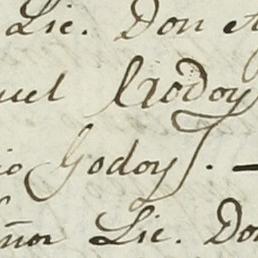 Lic. Don
uel Godoy
io Godoy. —
ñor Lic. Don